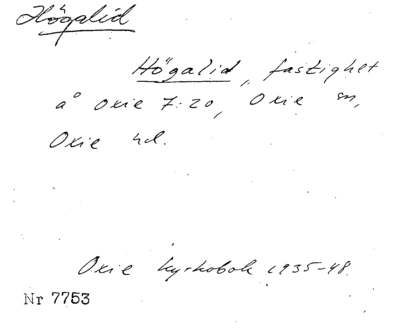 Högalid
Högalid, fastighet
å Oxie 7:20, Oxie sn,
Oxie hd.
Oxie kyrkobok 1935-48
Nr 7753